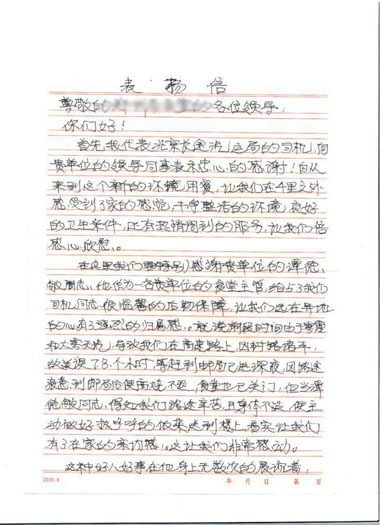 表扬信
尊敬的 各位领导：
你们好！
首先我代表北京 运局的司机，向
贵单位的领导同事表示忠心的感谢！自从
来到这个新的环境用餐，让我们在千里之外
感受到了家的感觉，干净整洁的环境，良好
的卫生条件，还有热情周到的服务，让我们倍
感心欣慰。
在这里我们要特别感谢贵单位的谭德
敏同志，他作为一名贵单位的食堂主管，给与了我们
司机同志很温馨的后勤保障，让我们远在异地
的心有了强烈的归属感。就说前段时间由于降雪
和大雾天气，导致我们在高速路上，因封路堵车，
故 误了7.8.个小时，等赶到邮局已经深夜，因路途
疲惫，到邮局后便 不退，食堂也已关门，但当谭
德敏同志，得知我们路途辛苦，且身体不适，便主
动做好 的饭菜送到楼上，着实让我们
有了在家的亲切感。这让我们非常感动。
这种好人好事在他身上无数次的展演着，
2010.6 年 月 日 第 页